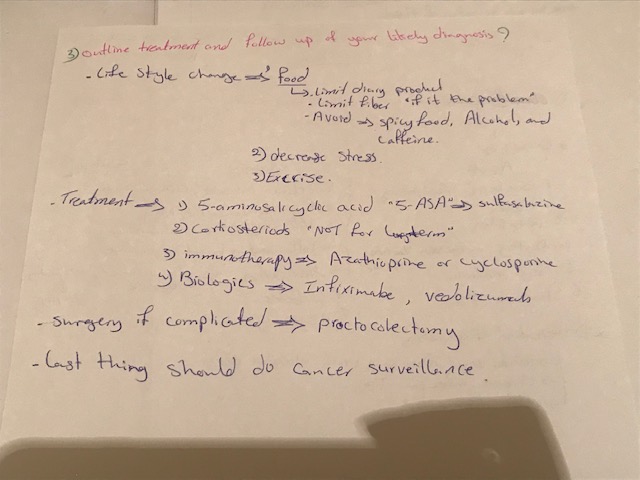 3) outline treatment and follow up of your likely diagnosis?
- Life style change => 1) food
↳ . limit diary product
- Limit fiber "if it the problem"
- Avoid => spicy food, Alcohol, and
caffeine.
2) decrease stress.
3) Excrise.
- Treatment => 1) 5-aminosalicyclic acid "5-ASA" => sulfasalazine
2) Cortiosteriods "NOT for longterm"
3) immunotherapy => Azathioprine or cyclosporine
4) Biologics => Infiximabe, vedolizumab
- surgery if complicated => proctocolectomy
- Last thing should do cancer surveillance.